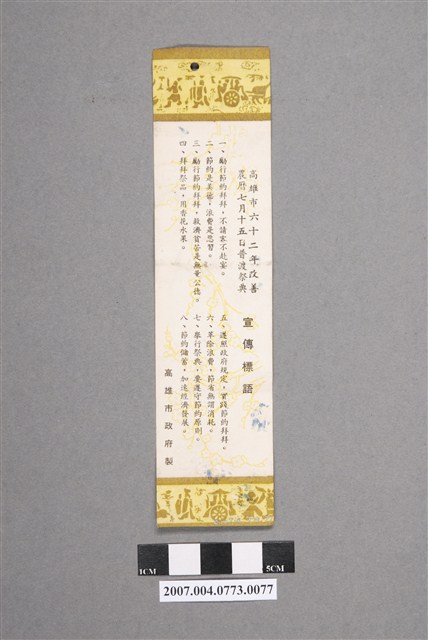 高雄市六十二年改善
農曆七月十五日普渡祭典
宣傳標語
一、勵行節約拜拜，不請客不赴宴。
二、節約是美德，浪費是惡習。
三、勵行節約拜拜，救濟貧苦是無量公德。
四、拜拜祭品，用香花水果。
五、遵照政府規定，實踐節約拜拜。
六、革除浪費，節省無謂消耗。
七、舉行祭典，要遵守節約原則。
八、節約儲蓄，加速經濟發展。
高雄市政府製
1CM
5CM
2007.004.0773.0077